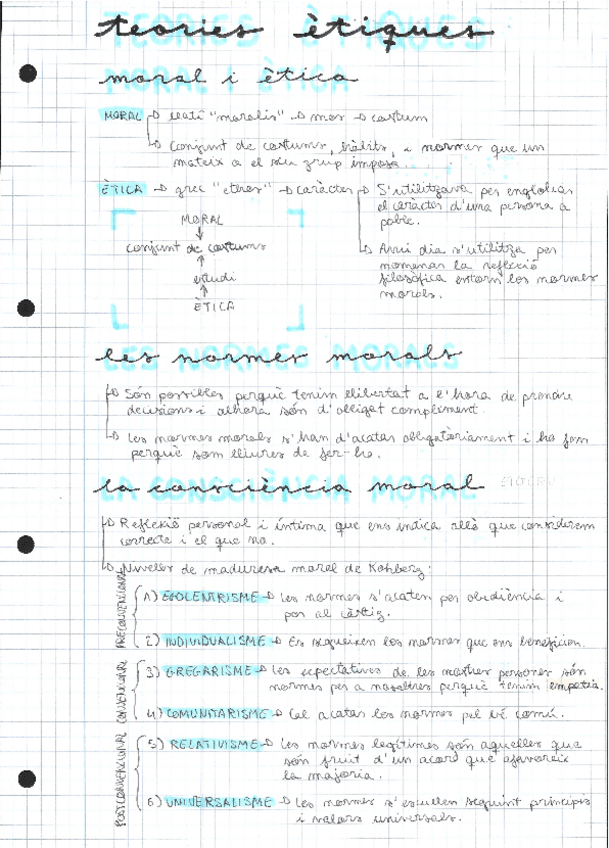 teories ètiques
moral i ètica
MORAL → llatí "moralis" → mos → costum
→ Conjunt de costums, hàbits, i normes que un
mateix o el seu grup imposa.
ÈTICA → grec "etheos" → caràcter → S'utilitzava per englobar
el caràcter d'una persona o
poble.
→ Avui dia s'utilitza per
nomenar la reflexió
filosòfica entorn les normes
morals.
MORAL
↓
conjunt de costums
↑
estudi
↑
ÈTICA
les normes morals
→ Són possibles perquè tenim llibertat a l'hora de prendre
decisions i alhora són d'obligat compliment.
→ Les normes morals s'han d'acatar obligatòriament i ho fem
perquè som lliures de fer-ho.
la consciència moral
→ Reflexió personal i íntima que ens indica allò que considerem
correcte i el que no.
→ Nivells de maduresa moral de Kohlberg:
PRECONVENCIONAL
1) EGOCENTRISME → Les normes s'acaten per obediència i
por al càstig.
2) INDIVIDUALISME → Es segueixen les normes que ens beneficien.
CONVENCIONAL
3) GREGARISME → Les expectatives de les nostres persones són
normes per a nosaltres perquè tenim empatia.
4) COMUNITARISME → Cal acatar les normes pel bé comú.
POSTCONVENCIONAL
5) RELATIVISME → Les normes legítimes són aquelles que
són fruit d'un acord que afavoreix
la majoria.
6) UNIVERSALISME → Les normes s'escullen seguint principis
i valors universals.